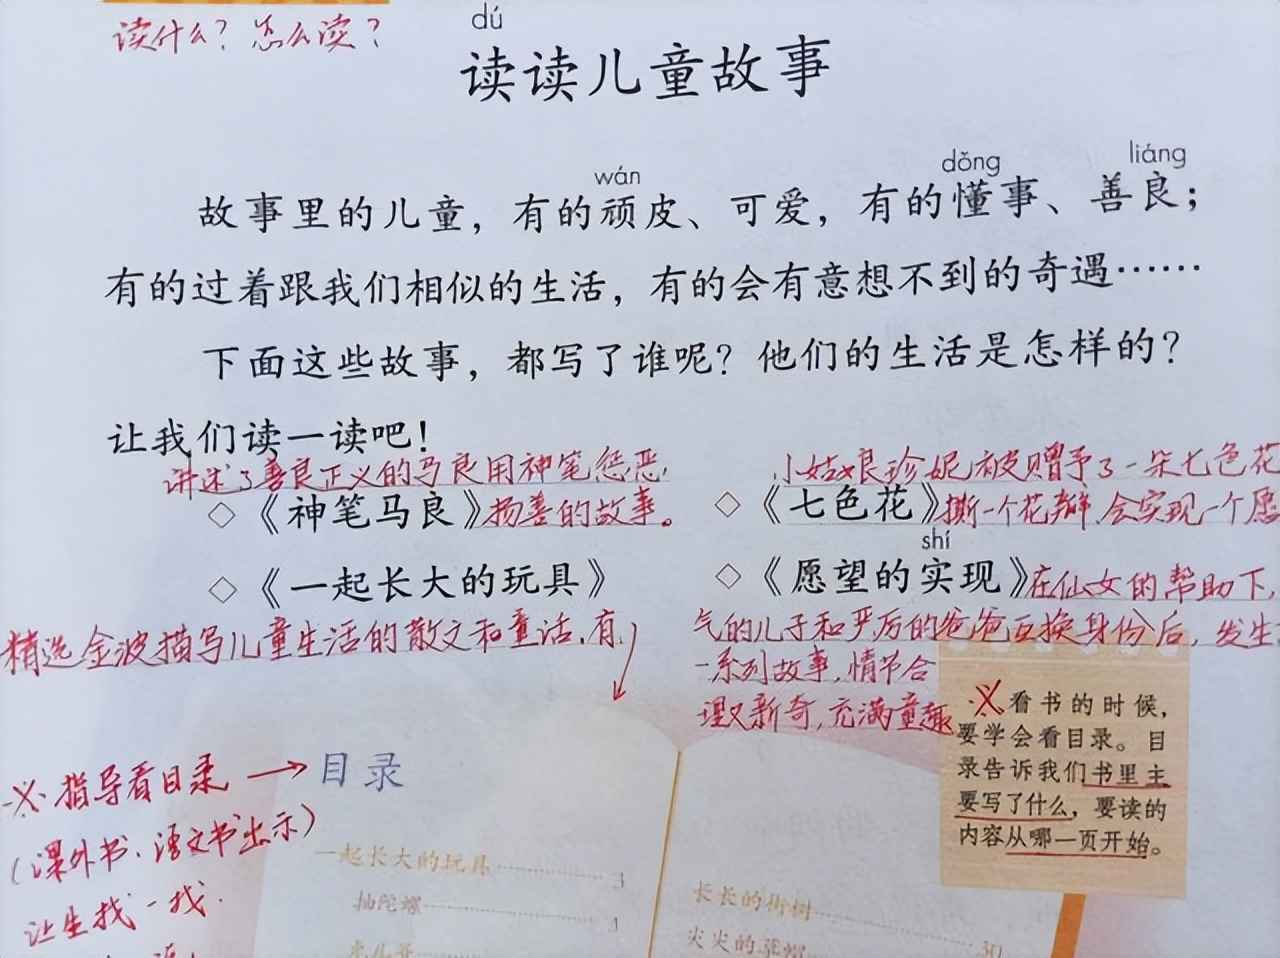 读什么？怎么读？
dú
读读儿童故事
wán dǒng liáng
故事里的儿童，有的顽皮、可爱，有的懂事、善良；
有的过着跟我们相似的生活，有的会有意想不到的奇遇……
下面这些故事，都写了谁呢？他们的生活是怎样的？
让我们读一读吧！
讲述了善良正义的马良用神笔惩恶
◇《神笔马良》扬善的故事。
小姑娘珍妮被赠予了一朵七色花
◇《七色花》撕一个花瓣，会实现一个愿
shí
◇《一起长大的玩具》
◇《愿望的实现》在仙女的帮助下，
精选金波描写儿童生活的散文和童话，有
气的儿子和严厉的爸爸互换身份后，发生
一系列故事，情节合
理又新奇，充满童趣
※看书的时候，
要学会看目录。目
录告诉我们书里主
要写了什么，要读的
内容从哪一页开始。
※指导看目录→目录
（课外书、语文书出示）
让生找一找.
一起长大的玩具 3
抽陀螺
长长的街树
尖尖的草帽 30